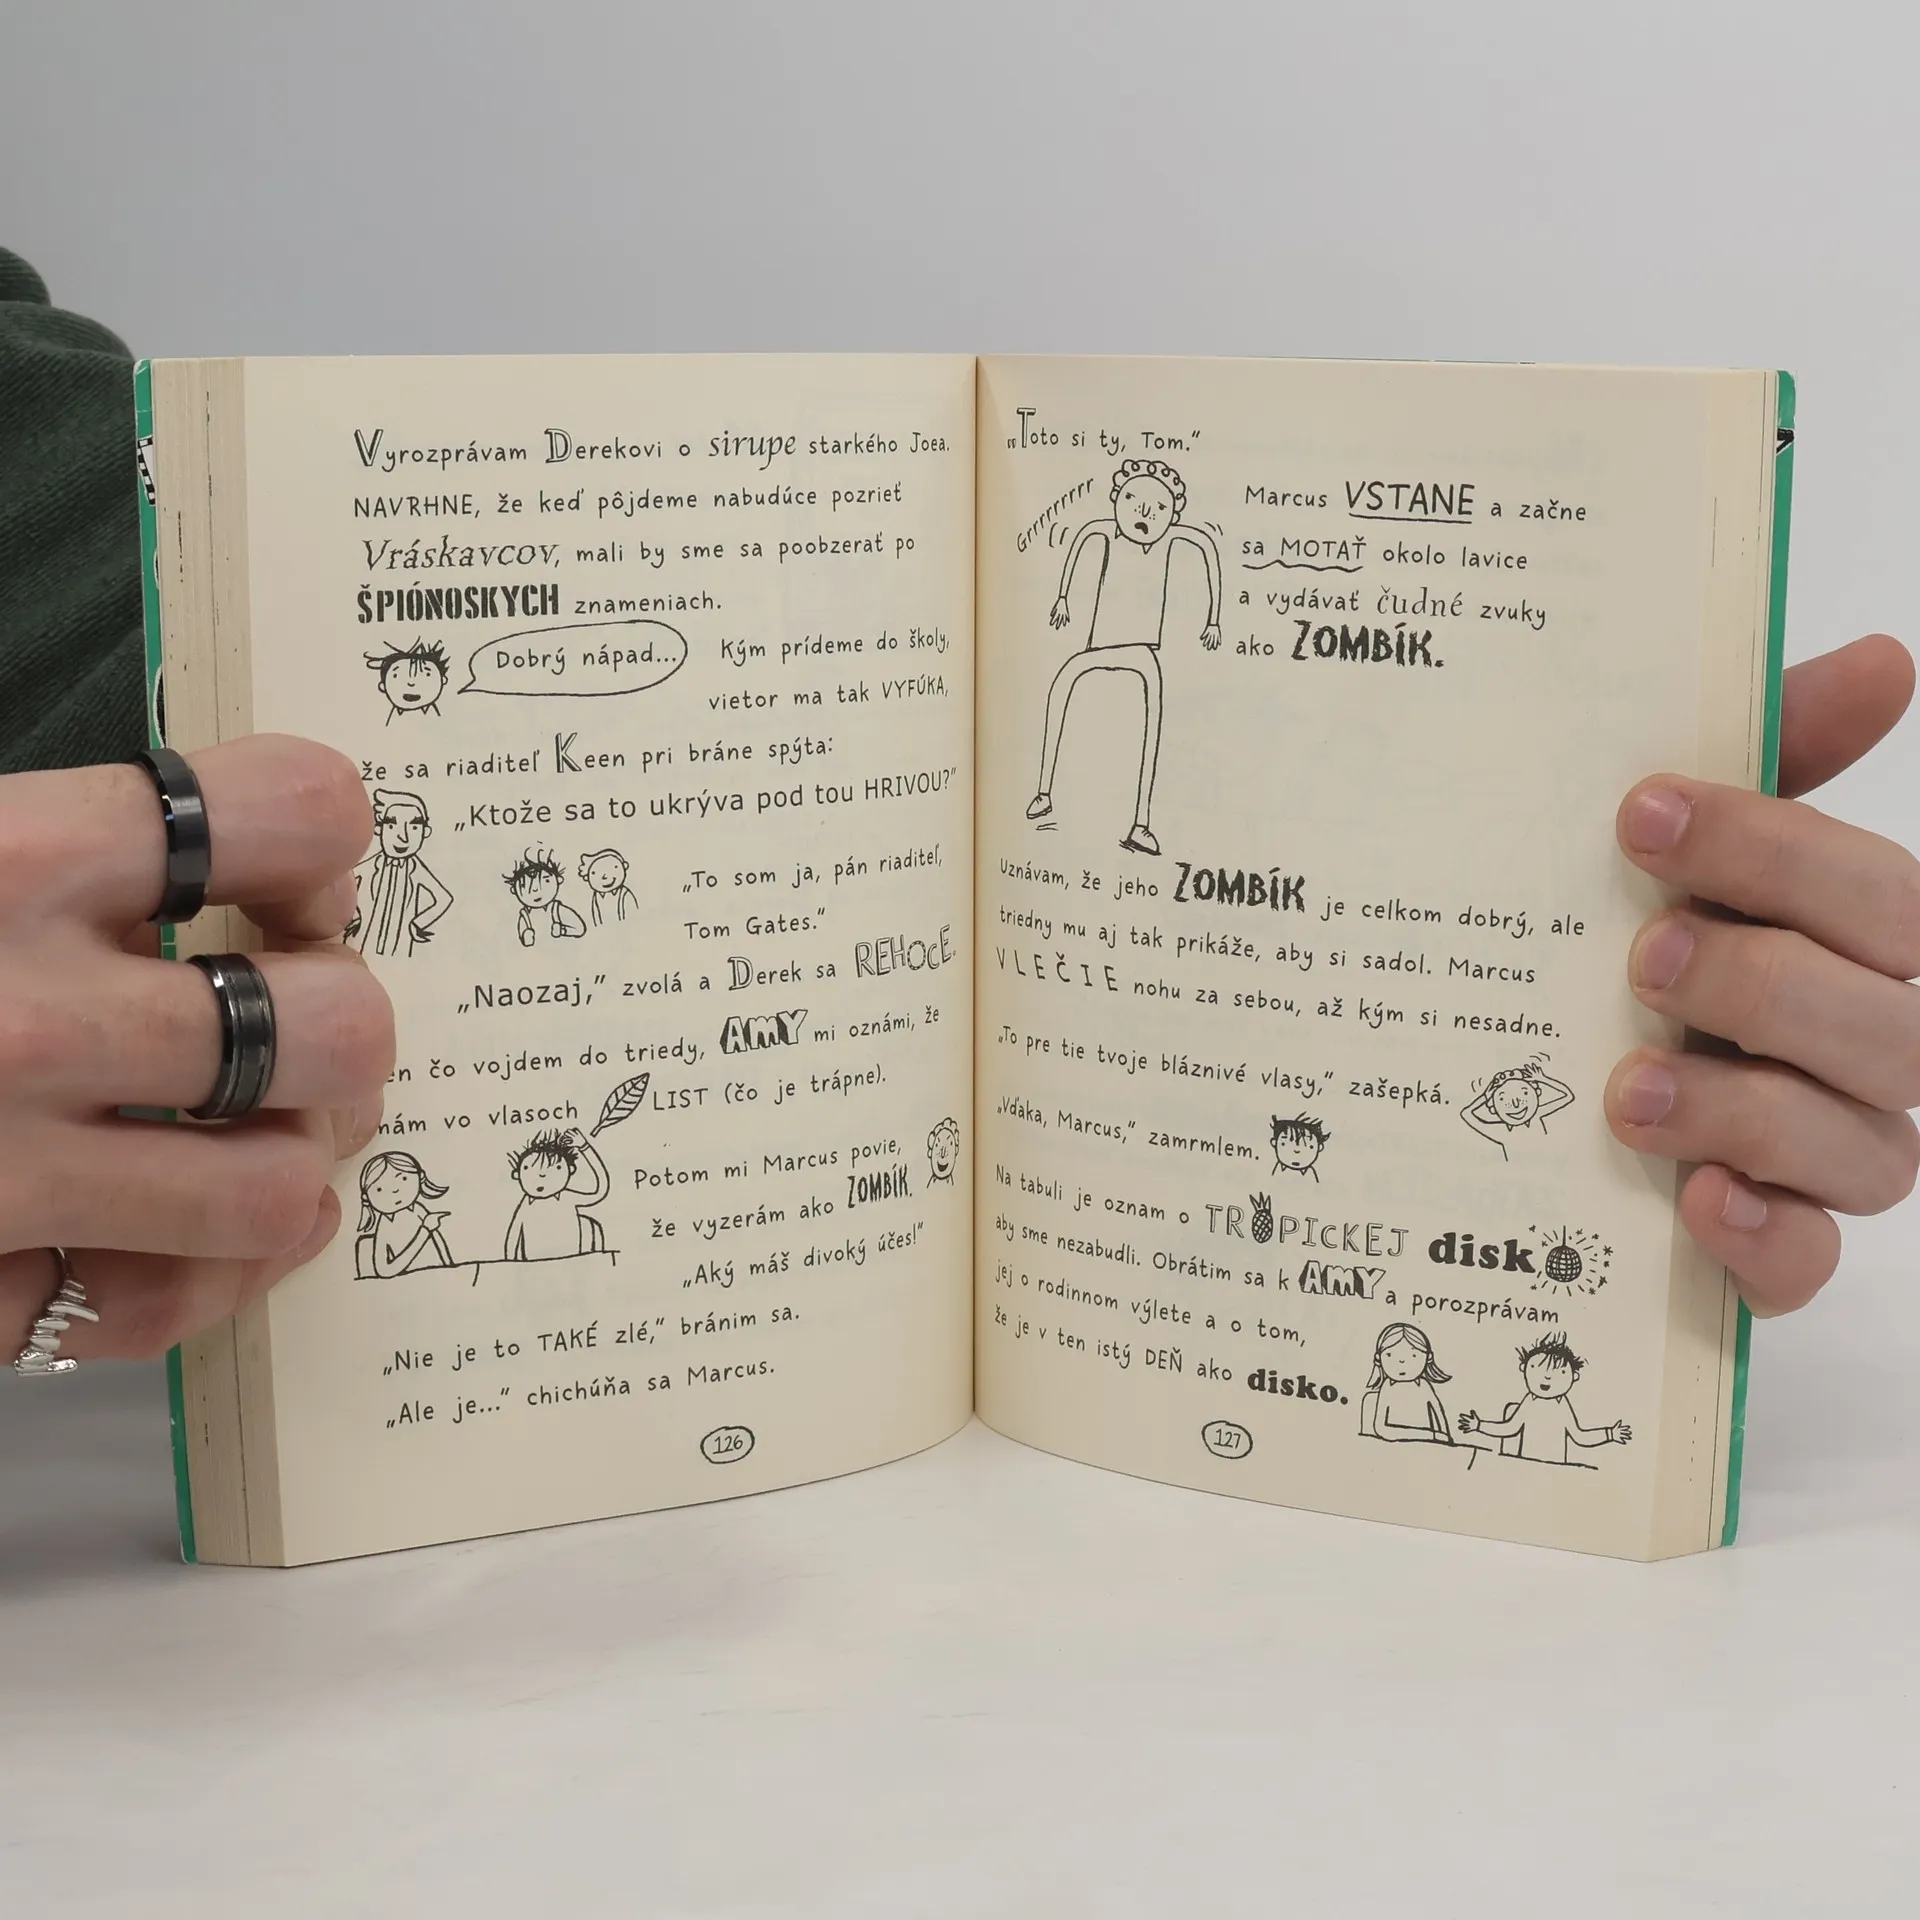 Vyrozprávam Derekovi o sirupe starkého Joea.
NAVRHNE, že keď pôjdeme nabudúce pozrieť
Vráskavcov, mali by sme sa poobzerať po
ŠPIÓNOSKYCH znameniach.
Dobrý nápad...
Kým prídeme do školy,
vietor ma tak VYFÚKA,
že sa riaditeľ Keen pri bráne spýta:
„Ktože sa to ukrýva pod tou HRIVOU?“
„To som ja, pán riaditeľ,
Tom Gates.“
„Naozaj,“ zvolá a Derek sa REHOCE.
čo vojdem do triedy, AMY mi oznámi, že
mám vo vlasoch LIST (čo je trápne).
Potom mi Marcus povie,
že vyzerám ako ZOMBÍK.
„Aký máš divoký účes!“
„Nie je to TAKÉ zlé,“ bránim sa.
„Ale je...“ chichúňa sa Marcus.
126
„Toto si ty, Tom.“
Grrrrrrrr
Marcus VSTANE a začne
sa MOTAŤ okolo lavice
a vydávať čudné zvuky
ako ZOMBÍK.
Uznávam, že jeho ZOMBÍK je celkom dobrý, ale
triedny mu aj tak prikáže, aby si sadol. Marcus
VLEČIE nohu za sebou, až kým si nesadne.
„To pre tie tvoje bláznivé vlasy,“ zašepká.
„Vďaka, Marcus,“ zamrmlem.
Na tabuli je oznam o TROPICKEJ disko
aby sme nezabudli. Obrátim sa k AMY a porozprávam
jej o rodinnom výlete a o tom,
že je v ten istý DEŇ ako disko.
127